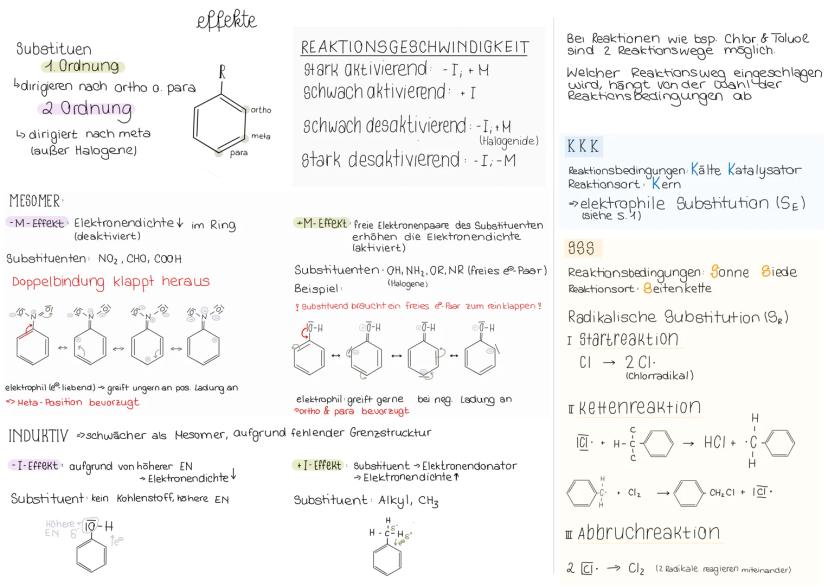 effekte
Substituen
1. Ordnung
↳dirigeren nach ortho o. para
2 Ordnung
↳ dirigiert nach meta
(außer Halogene)
R
ortho
meta
para
REAKTIONSGESCHWINDIGKEIT
stark aktivierend: -I; +M
schwach aktivierend: +I
schwach desaktivierend: -I;+M
(Halogenide)
stark desaktivierend: -I; -M
MESOMER:
-M-Effekt: Elektronendichte↓ im Ring
(deaktiviert)
Substituenten: NO2, CHO, COOH
Doppelbindung klappt heraus
elektrophil (e⊖-liebend) → greift ungern an pos. Ladung an
=> Meta-Position bevorzugt
+M-Effekt: freie Elektronenpaare des Substituenten
erhöhen die Elektronendichte
(aktiviert)
Substituenten: OH, NH2, OR, NR (freies e⊖-Paar)
(Halogene)
Beispiel:
! Substituend braucht ein freies e⊖-Paar zum reinklappen !
elektrophil: greift gerne bei neg. Ladung an
⇒ortho & para bevorzugt
INDUKTIV ⇒schwächer als Mesomer, aufgrund fehlender Grenzstrucktur
-I-Effekt: aufgrund von höherer EN
→ Elektronendichte↓
Substituent: kein Kohlenstoff, höhere EN
Höhere
EN
IO-H
+I-Effekt: Substituent → Elektronendonator
→ Elektronendichte↑
Substituent: Alkyl, CH3
H
H-C-H
Bei Reaktionen wie bsp. Chlor & Toluol
sind 2 Reaktionswege möglich.
Welcher Reaktionsweg eingeschlagen
wird, hängt von der Wahl der
Reaktionsbedingungen ab
KKK
Reaktionsbedingungen: Kälte Katalysator
Reaktionsort: Kern
⇒ elektrophile Substitution (SE)
(siehe S. 1)
SSS
Reaktionsbedingungen: Sonne Siede
Reaktionsort: Seitenkette
Radikalische Substitution (SR)
I Startreaktion
Cl → 2 Cl·
(Chlorradikal)
II Kettenreaktion
ICl· + H-C → HCl + ·C
+ Cl2 → CH2Cl + ICl·
III Abbruchreaktion
2 Cl· → Cl2 (2 Radikale reagieren miteinander)